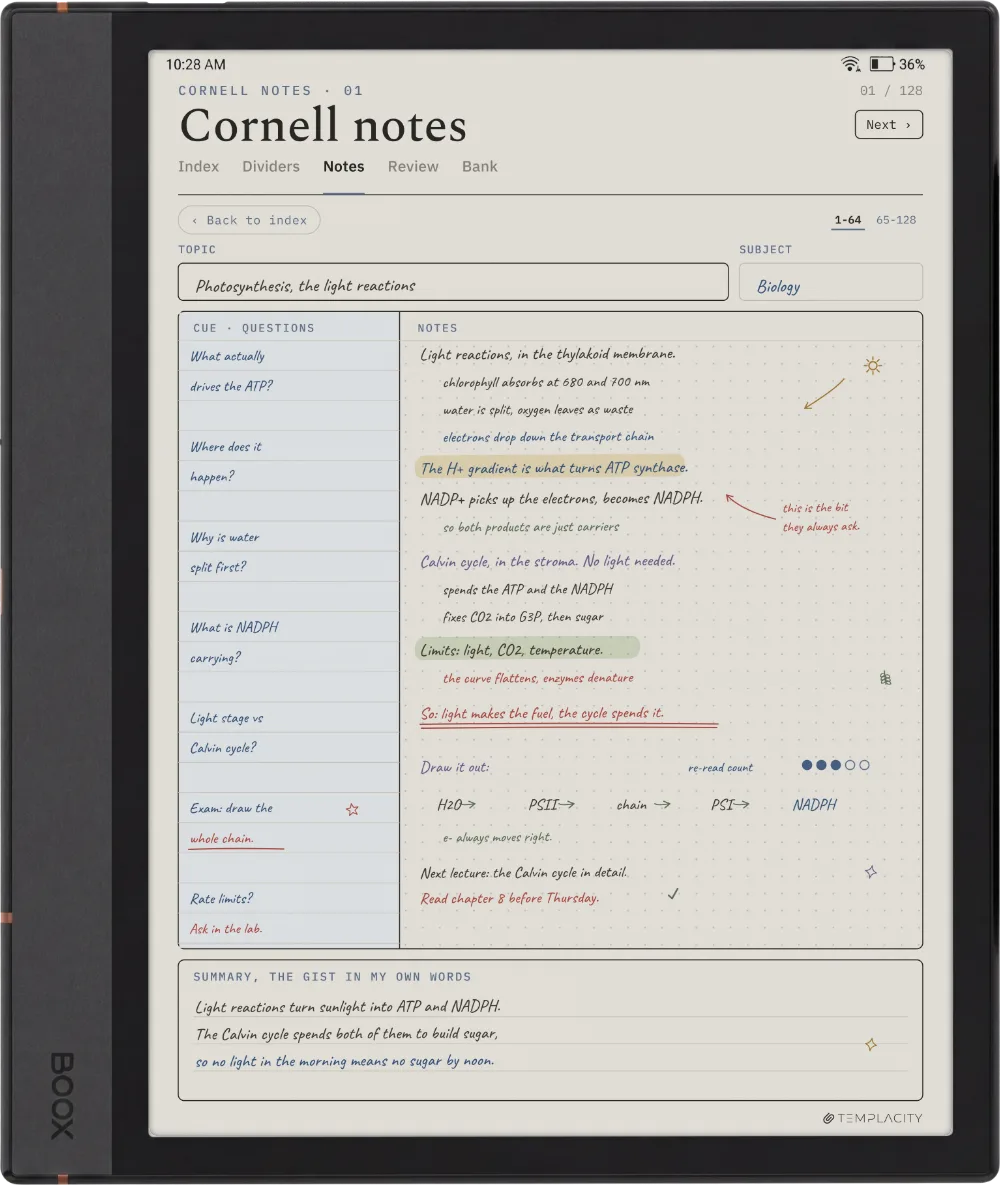 10:28 AM
36%
CORNELL NOTES · 01
01 / 128
Cornell notes
Next ›
Index
Dividers
Notes
Review
Bank
‹ Back to index
1-64
65-128
TOPIC
SUBJECT
Photosynthesis, the light reactions
Biology
CUE · QUESTIONS
What actually
drives the ATP?
Where does it
happen?
Why is water
split first?
What is NADPH
carrying?
Light stage vs
Calvin cycle?
Exam: draw the
whole chain.
Rate limits?
Ask in the lab.
NOTES
Light reactions, in the thylakoid membrane.
chlorophyll absorbs at 680 and 700 nm
water is split, oxygen leaves as waste
electrons drop down the transport chain
The H+ gradient is what turns ATP synthase.
NADP+ picks up the electrons, becomes NADPH.
this is the bit
they always ask.
so both products are just carriers
Calvin cycle, in the stroma. No light needed.
spends the ATP and the NADPH
fixes CO2 into G3P, then sugar
Limits: light, CO2, temperature.
the curve flattens, enzymes denature
So: light makes the fuel, the cycle spends it.
Draw it out:
re-read count
H2O → PSII → chain → PSI → NADPH
e- always moves right.
Next lecture: the Calvin cycle in detail.
Read chapter 8 before Thursday.
SUMMARY, THE GIST IN MY OWN WORDS
Light reactions turn sunlight into ATP and NADPH.
The Calvin cycle spends both of them to build sugar,
so no light in the morning means no sugar by noon.
TEMPLACITY
BOOX